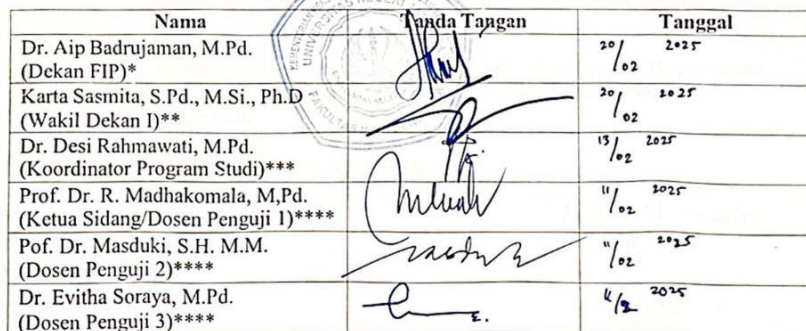 Nama Tanda Tangan Tanggal
Dr. Aip Badrujaman, M.Pd.
(Dekan FIP)*
20/02 2025
Karta Sasmita, S.Pd., M.Si., Ph.D
(Wakil Dekan I)**
20/02 2025
Dr. Desi Rahmawati, M.Pd.
(Koordinator Program Studi)***
13/02 2025
Prof. Dr. R. Madhakomala, M,Pd.
(Ketua Sidang/Dosen Penguji 1)****
11/02 2025
Pof. Dr. Masduki, S.H. M.M.
(Dosen Penguji 2)****
11/02 2025
Dr. Evitha Soraya, M.Pd.
(Dosen Penguji 3)****
2025